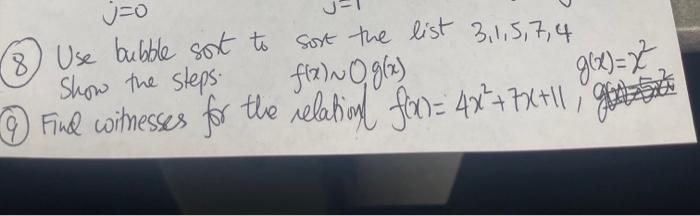 j=0 j=1
⑧ Use bubble sort to sort the list 3,1,5,7,4
Show the steps. f(x)~O g(x) g(x)=x²
⑨ Find witnesses for the relation f(x)=4x²+7x+11,